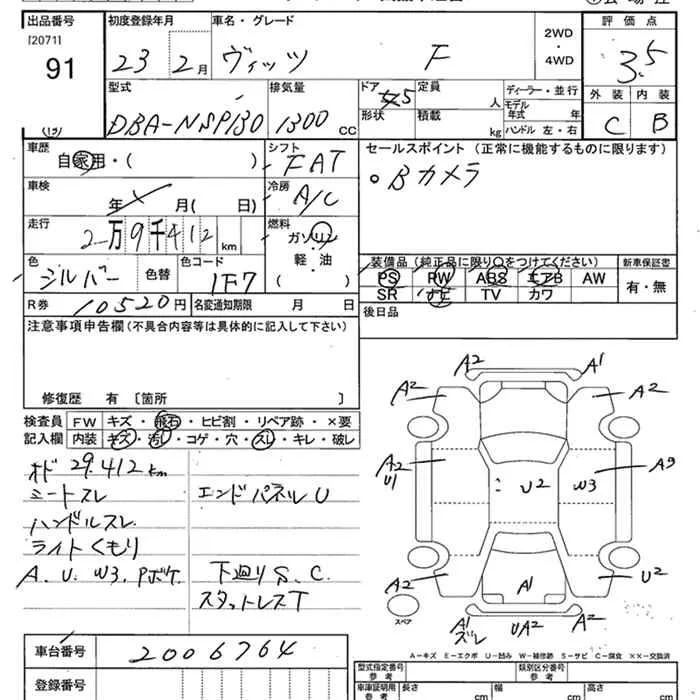 出品番号 初度登録年月 車名・グレード 2WD 評価点
[2071] 23 2月 ヴィッツ F ・ 3.5
91 4WD 外装 内装
型式 排気量 ドア 5 定員 人 ディーラー・並行 C B
DBA-NSP130 1300 CC 形状 積載 kg モデル年式 年
ハンドル 左・右
車歴 自家用・( ) シフト FAT セールスポイント (正常に機能するものに限ります)
車検 年 月( 日) 冷房 A/C 。Bカメラ
走行 2万9千412 km 燃料 ガソリン
軽・油
色 シルバー 色替 色コード 1F7 装備品(純正品に限り○をつけてください) 新車保証書
PS PW ABS エアB AW 有・無
SR ナビ TV カワ
R券 10520円 名変通知期限 月 日 後日品
注意事項申告欄(不具合内容等は具体的に記入して下さい)
修復歴 有 〔箇所 〕
検査員 FW キズ・飛石・ヒビ割・リペア跡・×要
記入欄 内装 キズ・汚れ・コゲ・穴・スレ・キレ・破レ
オド 29.412km
シートスレ エンドパネルU
ハンドルスレ
ライトくもり
A. U. W3. Pポケ 下廻りS.C.
スタットレスT
A2 A1
A2 A2
A2 U1 U2 W3 A3
A2 A1 U2
スペア A1 ズレ UA2 A2
A-キズ E-エクボ U-凹み W-補修跡 S-サビ C-腐食 ××-交換済
車台番号 2006764
登録番号
型式指定番号 参考 類別区分番号 参考
車庫証明用 参考 長さ cm 幅 cm 高さ cm